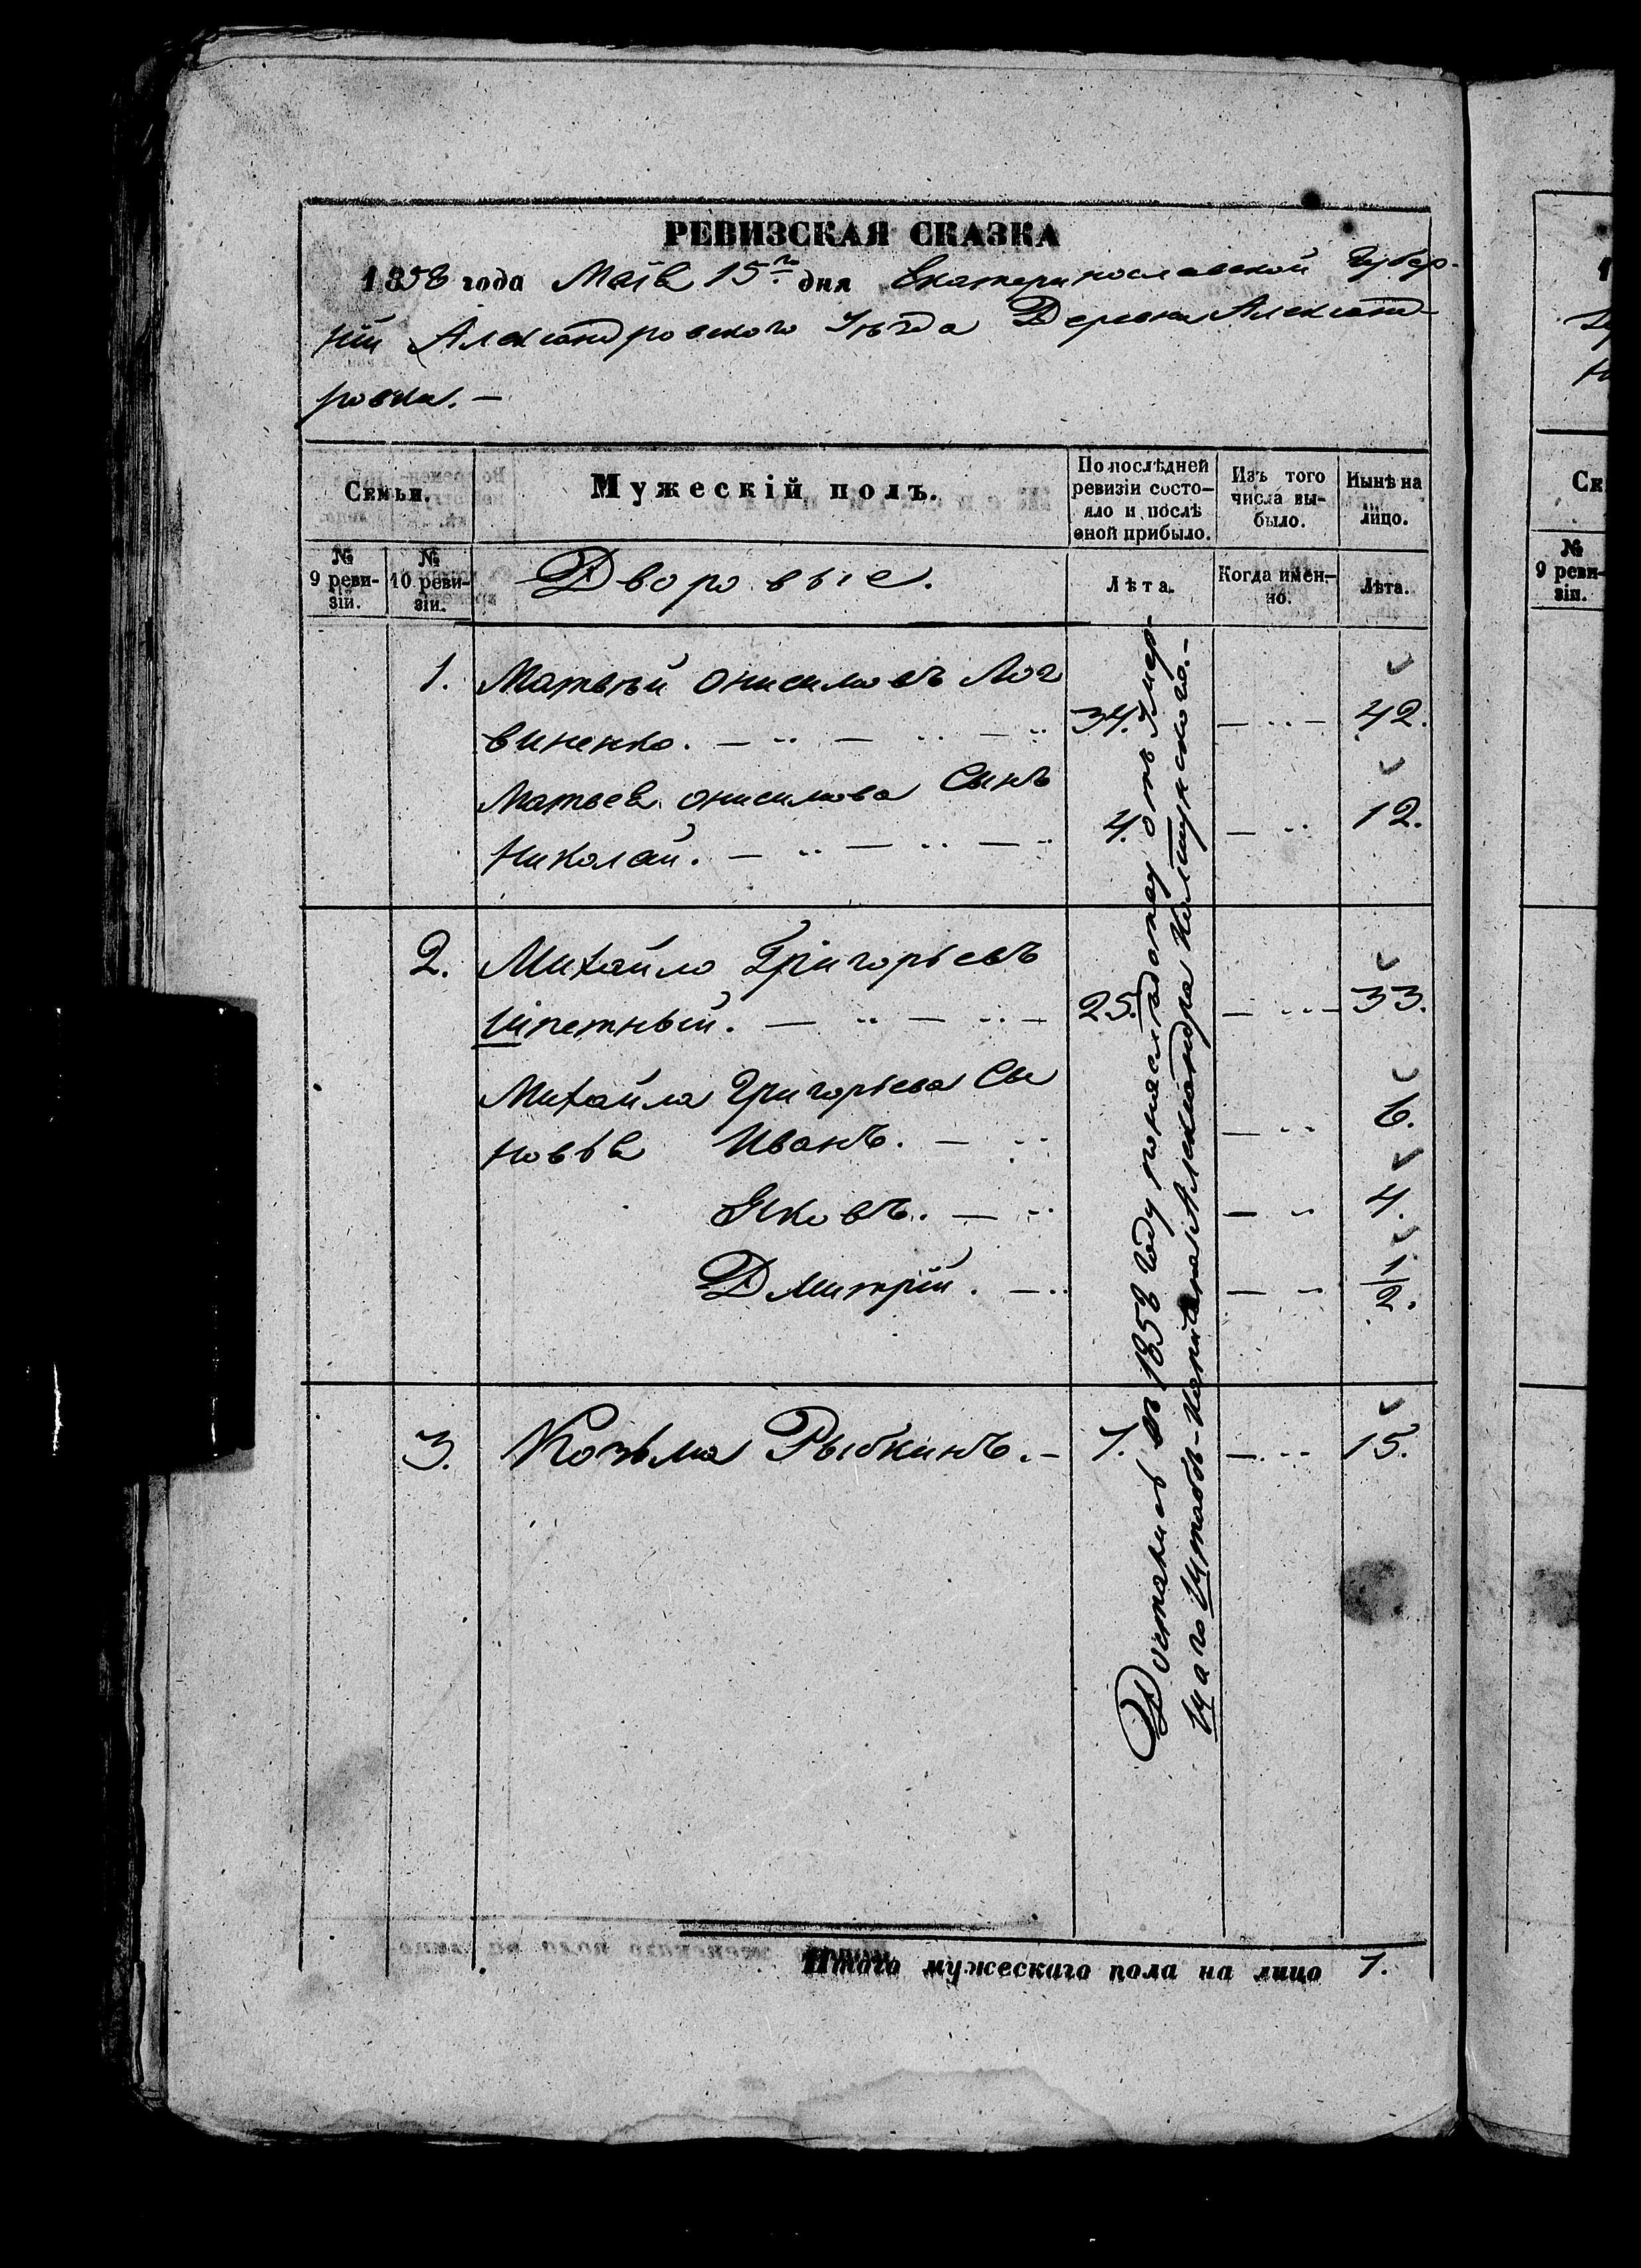 РЕВИЗСКАЯ СКАЗКА
1858 года Маія 15го дня Екатеринославской Губер-
ніи Александровского Уѣзда Деревни Александ-
ровки. —
Семьи.
Мужескій полъ.
По послѣдней ревизіи состо-
яло и послѣ оной прибыло.
Изъ того числа вы-
было.
Нынѣ на лицо.
№ 9 реви-
зіи.
№ 10 реви-
зіи.
Дворовые.
Лѣта.
Когда имен-
но.
Лѣта.
1. Матвѣй Онисимовъ Лог
виненко. 34. 42.
Матвея Онисимова Сынъ
Николай. 4. 12.
2. Михайло Григорьевъ
Шпетный. 25. 33.
Михайла Григорьева Сы
новья Иванъ. 6.
Яковъ. 4.
Дмитрій. 1/2.
3. Козьма Рыбкинъ. 7. 15.
Достались въ 1858 Году по наследству отъ Умер-
шаго Штабъ-Капитана Александра
Итого мужескаго пола на лицо 7.
№ 9 реви-
зіи.